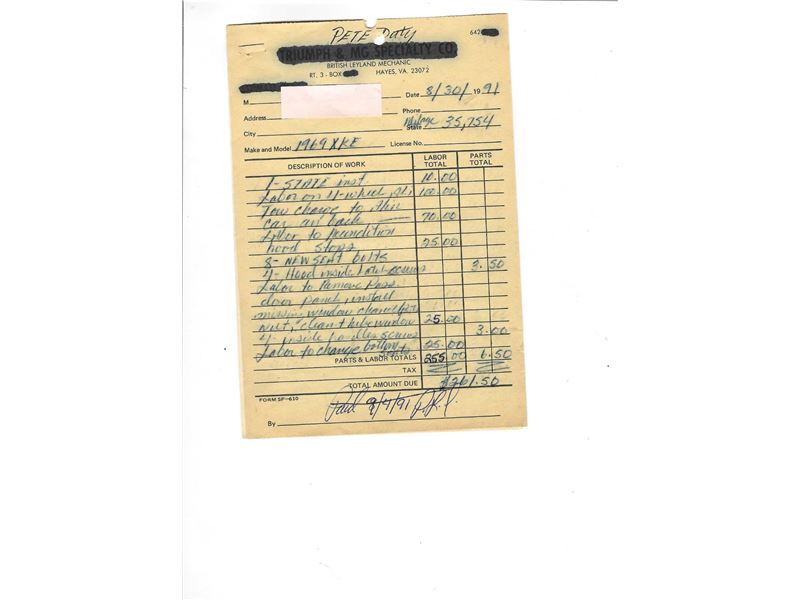 PETE Daty
642
TRIUMPH & MG SPECIALTY CO.
BRITISH LEYLAND MECHANIC
RT. 3 - BOX HAYES, VA. 23072
M Date 8/30/ 1991
Address Phone
City Milage State 35,754
Make and Model 1969 XKE License No.
DESCRIPTION OF WORK LABOR TOTAL PARTS TOTAL
1 - STATE inst. 10.00
Labor on 4-wheel 100.00
Tow charge to
car an back 70.00
Labor to Recondition
hood stops 25.00
8 - NEW SEAT bolts
4 - Hood inside screws 3.50
Labor to Remove Pass.
door panel, install
missing window channel
nut, clean & lube window 25.00
4 - inside screws 3.00
Labor to change bottom 25.00
PARTS & LABOR TOTALS 255.00 6.50
TAX
TOTAL AMOUNT DUE $261.50
FORM SF-610
Paid 9/4/91
By